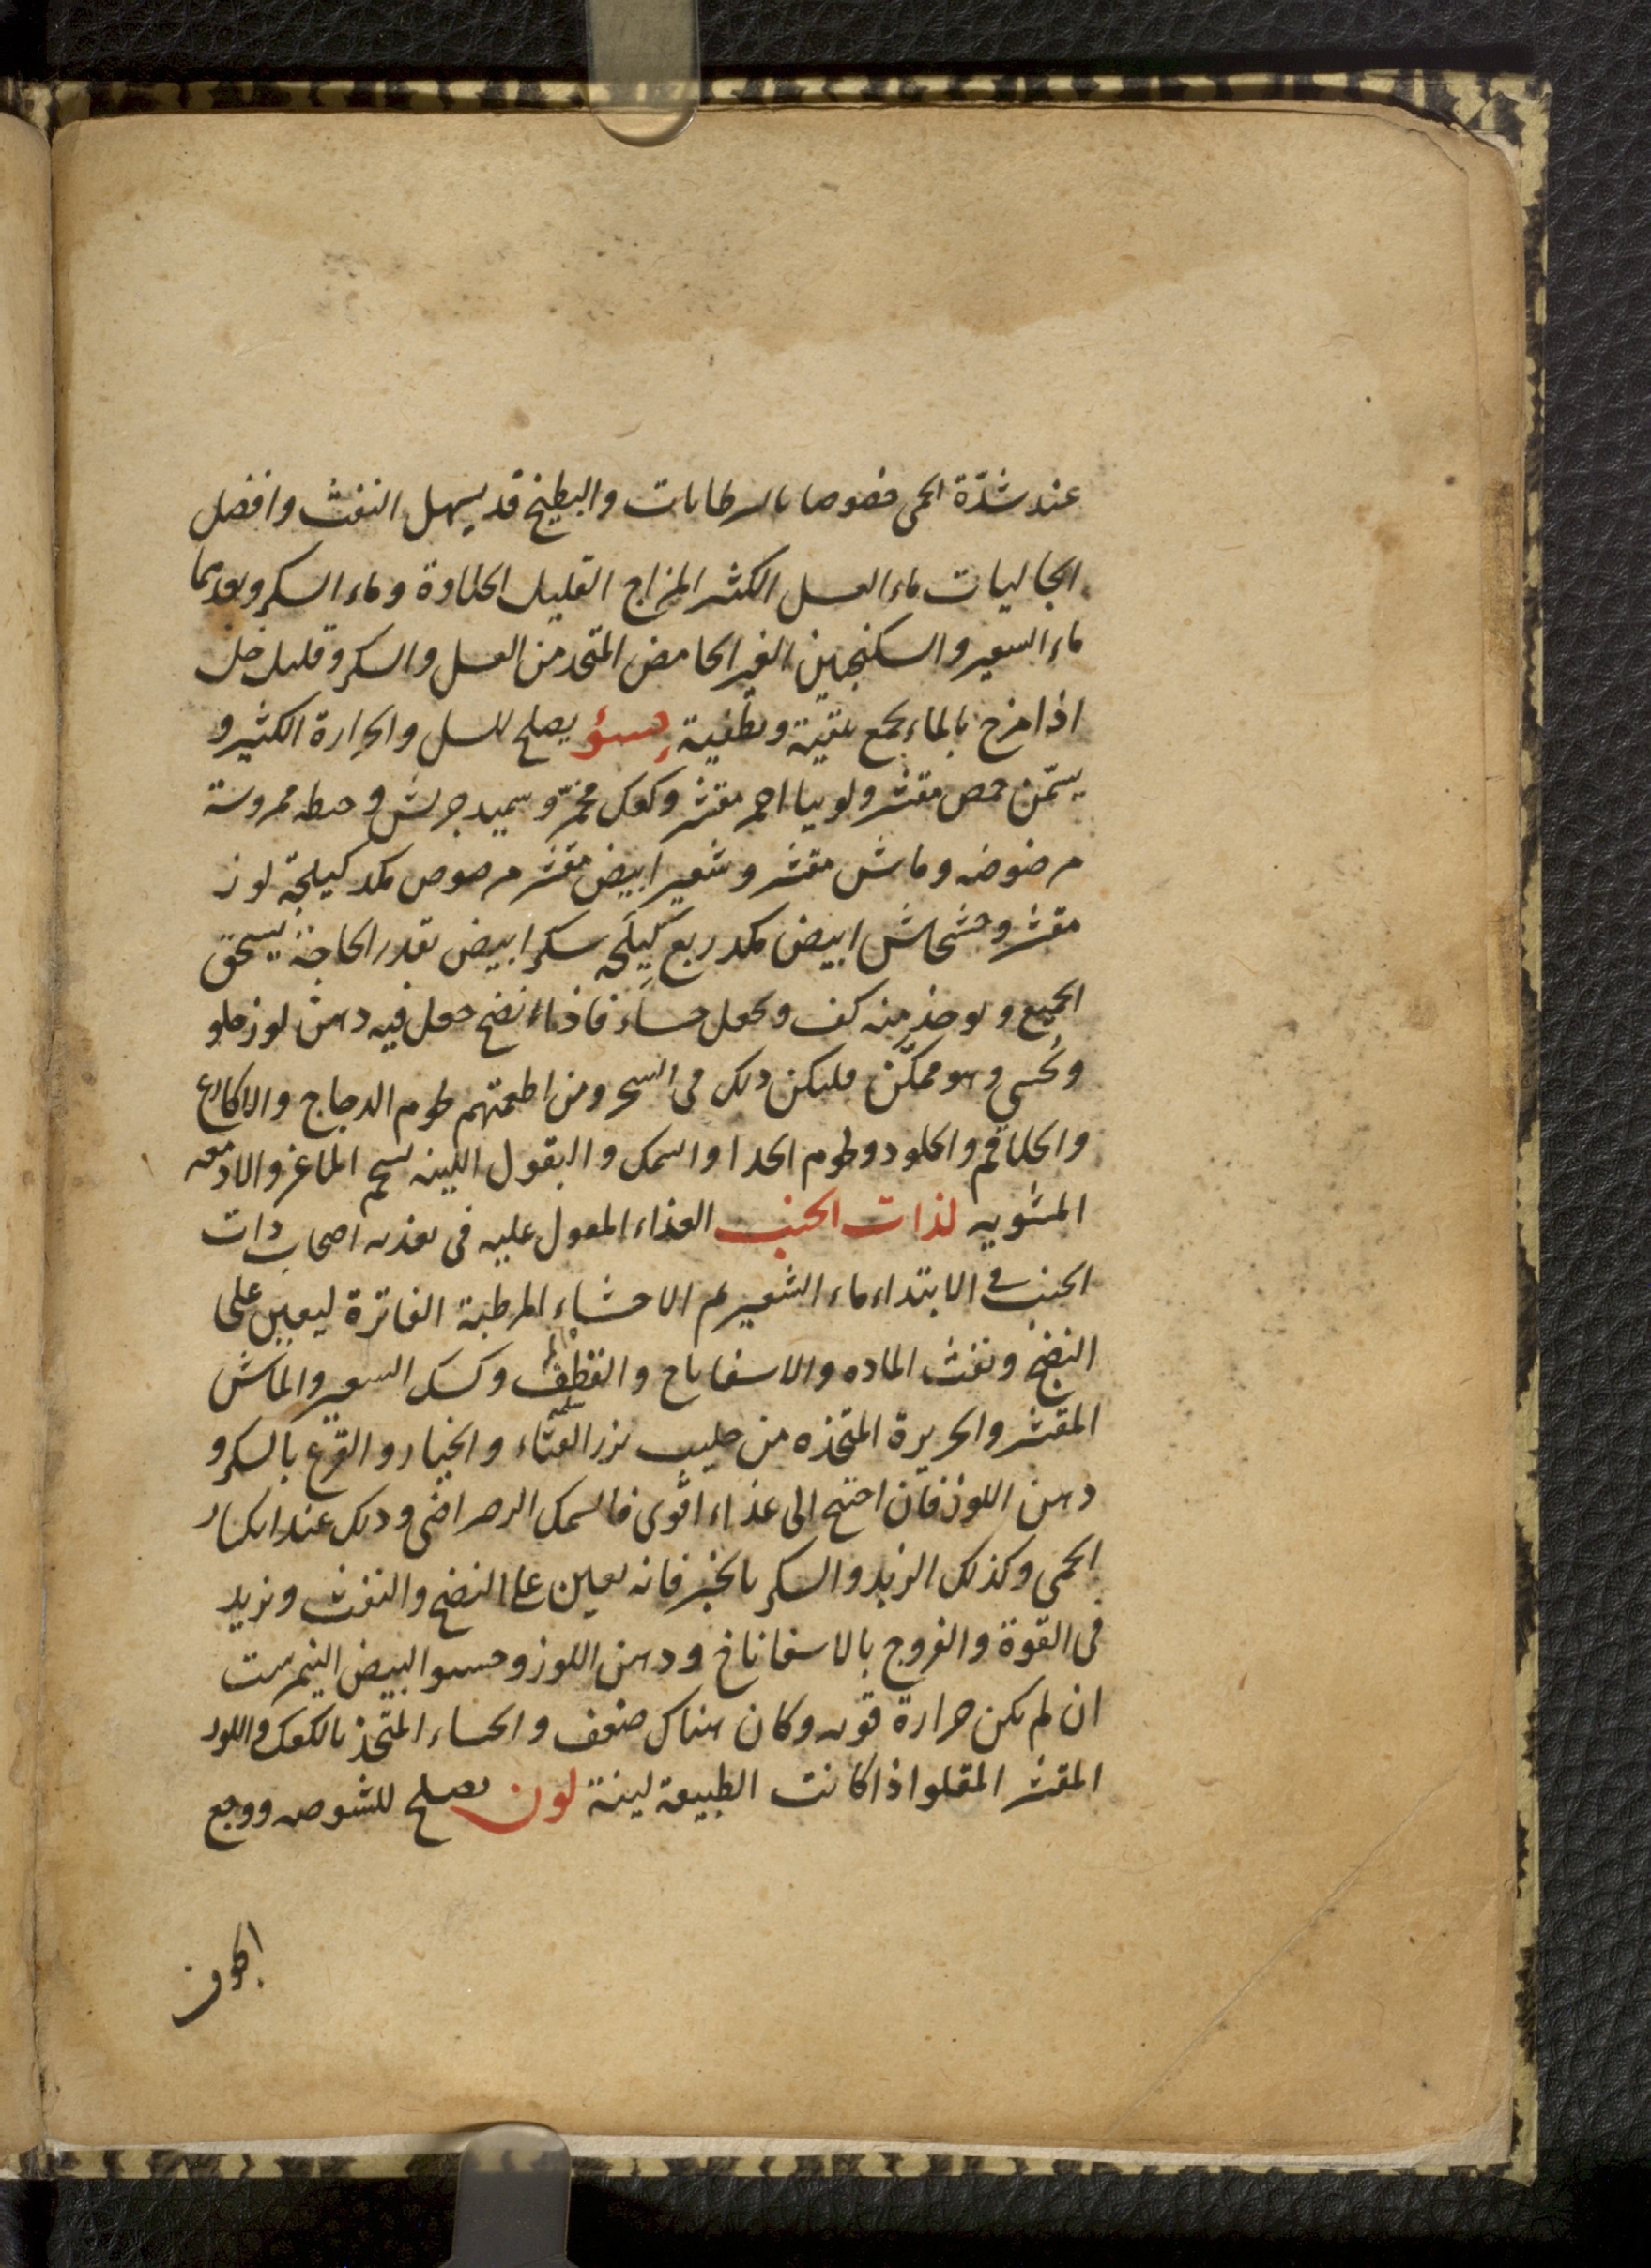 عند شدّة الحمى خصوصا بالرطابات والبطيخ قد يسهل النفث وافضل
الجاليات ماء العسل الكثير المزاج القليل الحلاوة وماء السكر وبعدهما
ماء الشعير والسكنجبين الغير الحامض المتخذ من العسل والسكر وقليل خل
اذا مزج بالماء يجمع تنقية وتطفية حسوٌ يصلح للسل والحرارة الكثير و
يسمّن حمص مقشر ولوبيا احمر مقشر وكعك مخمّر وسميد جريش وحنطه مهروسة
مرضوضه وماش مقشر وشعير ابيض مقشر مرضوض مكد كيلجة لوز
مقشر وخشخاش ابيض مكد ربع كيلجه سكر ابيض بقدر الحاجة يسحق
الجميع ويوخذ منه كف ويجعل حساء فاذا انضج جعل فيه دهن لوز حلو
وتُحسي وهو ممكّن فليكن ذلك في السحر ومن اطعمتهم لحوم الدجاج والاكارع
والحلاقم والجلود ولحوم الجدا والسمك والبقول اللينه بشحم الماعز والادمغه
المشويه لذات الجنب الغذاء المعول عليه في تغذيه اصحاب ذات
الجنب في الابتداء ماء الشعير ثم الاحشاء المرطبة الفاترة ليعين على
النضج ونفث الماده والاسفاناح والقطف وكشك الشعير والماش
المقشر والحريرة المتخذه من حليب بزر القثاء والخيار والقرع بالسكر و
دهن اللوز فان احتج الى غذاء اقوى فالسمك الرضراضى وذلك عند انكسار
الحمى وكذلك الزبد والسكر بالخبز فانه يعين على النضج والنفث ويزيد
في القوة والفروج بالاسفاناخ ودهن اللوز وحسو البيض النيمرشت
ان لم يكن حرارة قويه وكان هناك ضعف والحساء المتخذ بالكعك واللوز
المقشر المقلو اذا كانت الطبيعة لينة لون يصلح للشوصه ووجع
الجوف